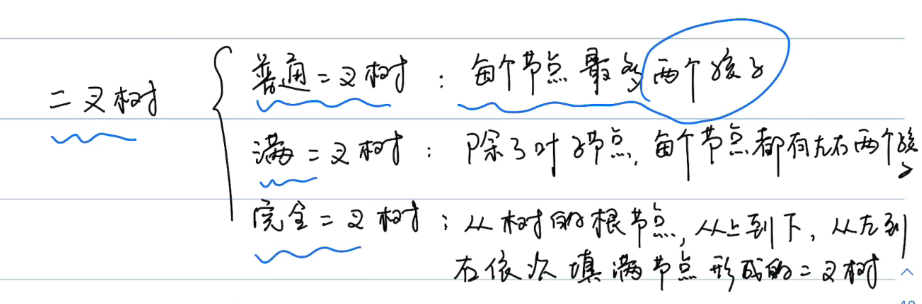 二叉树
普通二叉树：每个节点最多两个孩子
满二叉树：除了叶子节点，每个节点都有左右两个孩子
完全二叉树：从树的根节点，从上到下，从左到
右依次填满节点形成的二叉树